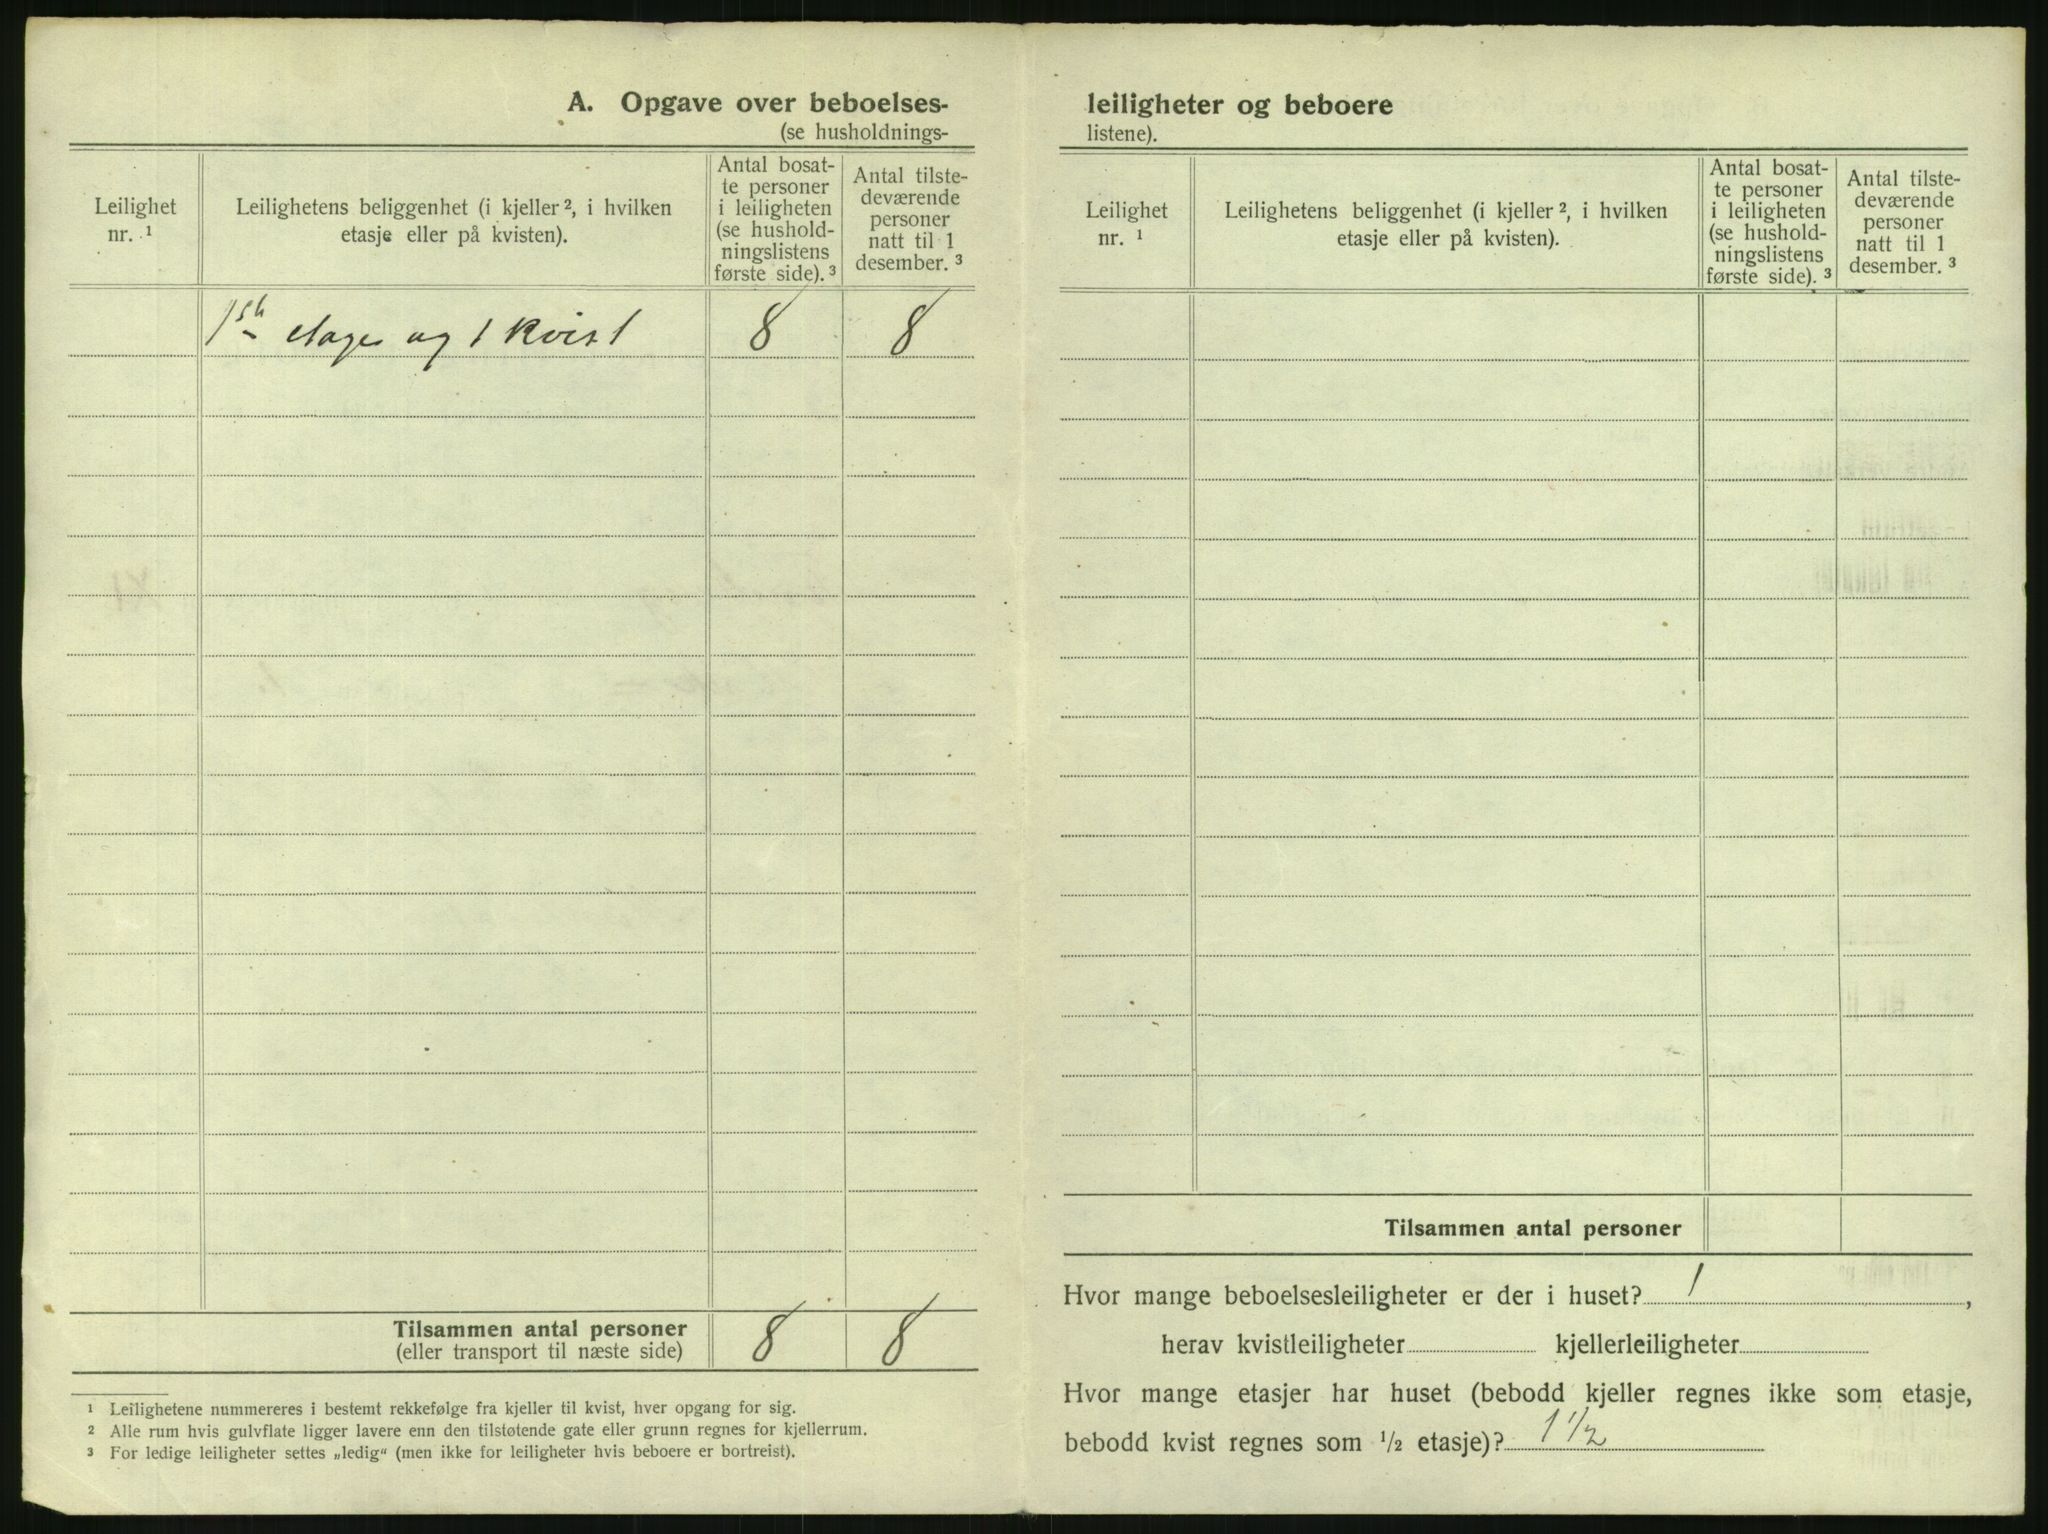 A. Opgave over beboelses-
(se husholdnings-
Leilighet
nr. ¹
Leilighetens beliggenhet (i kjeller ², i hvilken
etasje eller på kvisten).
Antal bosat-
te personer
i leiligheten
(se hushold-
ningslistens
første side). ³
Antal tilste-
deværende
personer
natt til 1
desember. ³
1ste etage og 1 kvist 8 8
Tilsammen antal personer 8 8
(eller transport til næste side)
¹ Leilighetene nummereres i bestemt rekkefølge fra kjeller til kvist, hver opgang for sig.
² Alle rum hvis gulvflate ligger lavere enn den tilstøtende gate eller grunn regnes for kjellerrum.
³ For ledige leiligheter settes „ledig“ (men ikke for leiligheter hvis beboere er bortreist).
leiligheter og beboere
listene).
Leilighet
nr. ¹
Leilighetens beliggenhet (i kjeller ², i hvilken
etasje eller på kvisten).
Antal bosat-
te personer
i leiligheten
(se hushold-
ningslistens
første side). ³
Antal tilste-
deværende
personer
natt til 1
desember. ³
Tilsammen antal personer
Hvor mange beboelsesleiligheter er der i huset? 1,
herav kvistleiligheter kjellerleiligheter
Hvor mange etasjer har huset (bebodd kjeller regnes ikke som etasje,
bebodd kvist regnes som ½ etasje)? 1 ½